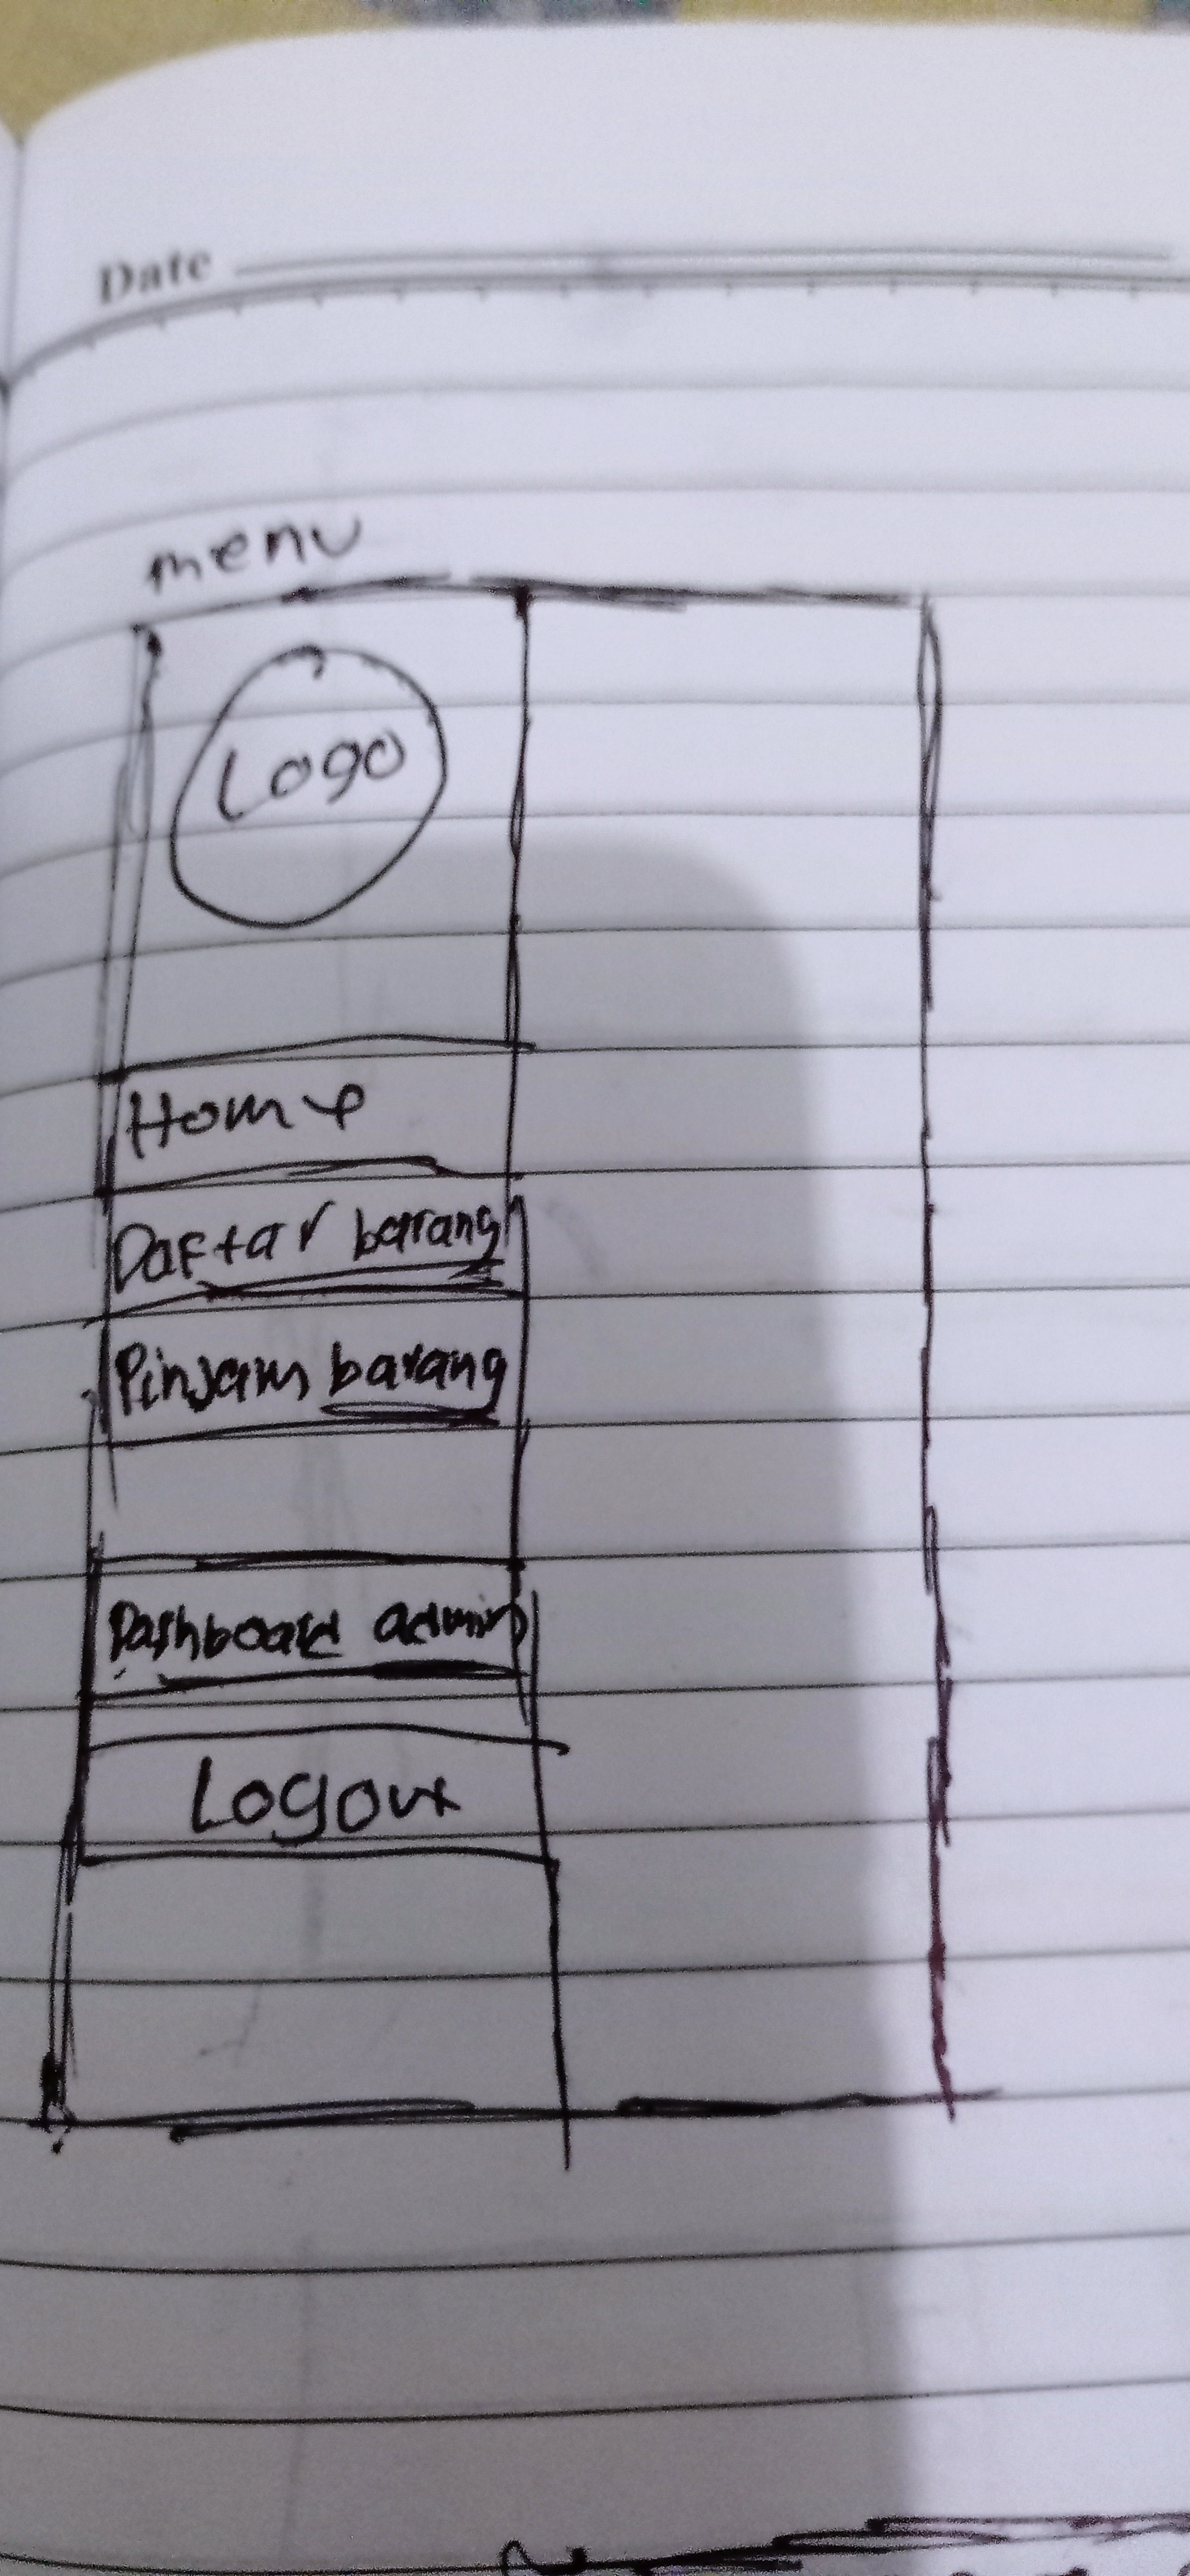 Date
menu
Logo
Home
Daftar barang
Pinjam barang
Dashboard admin
Logout